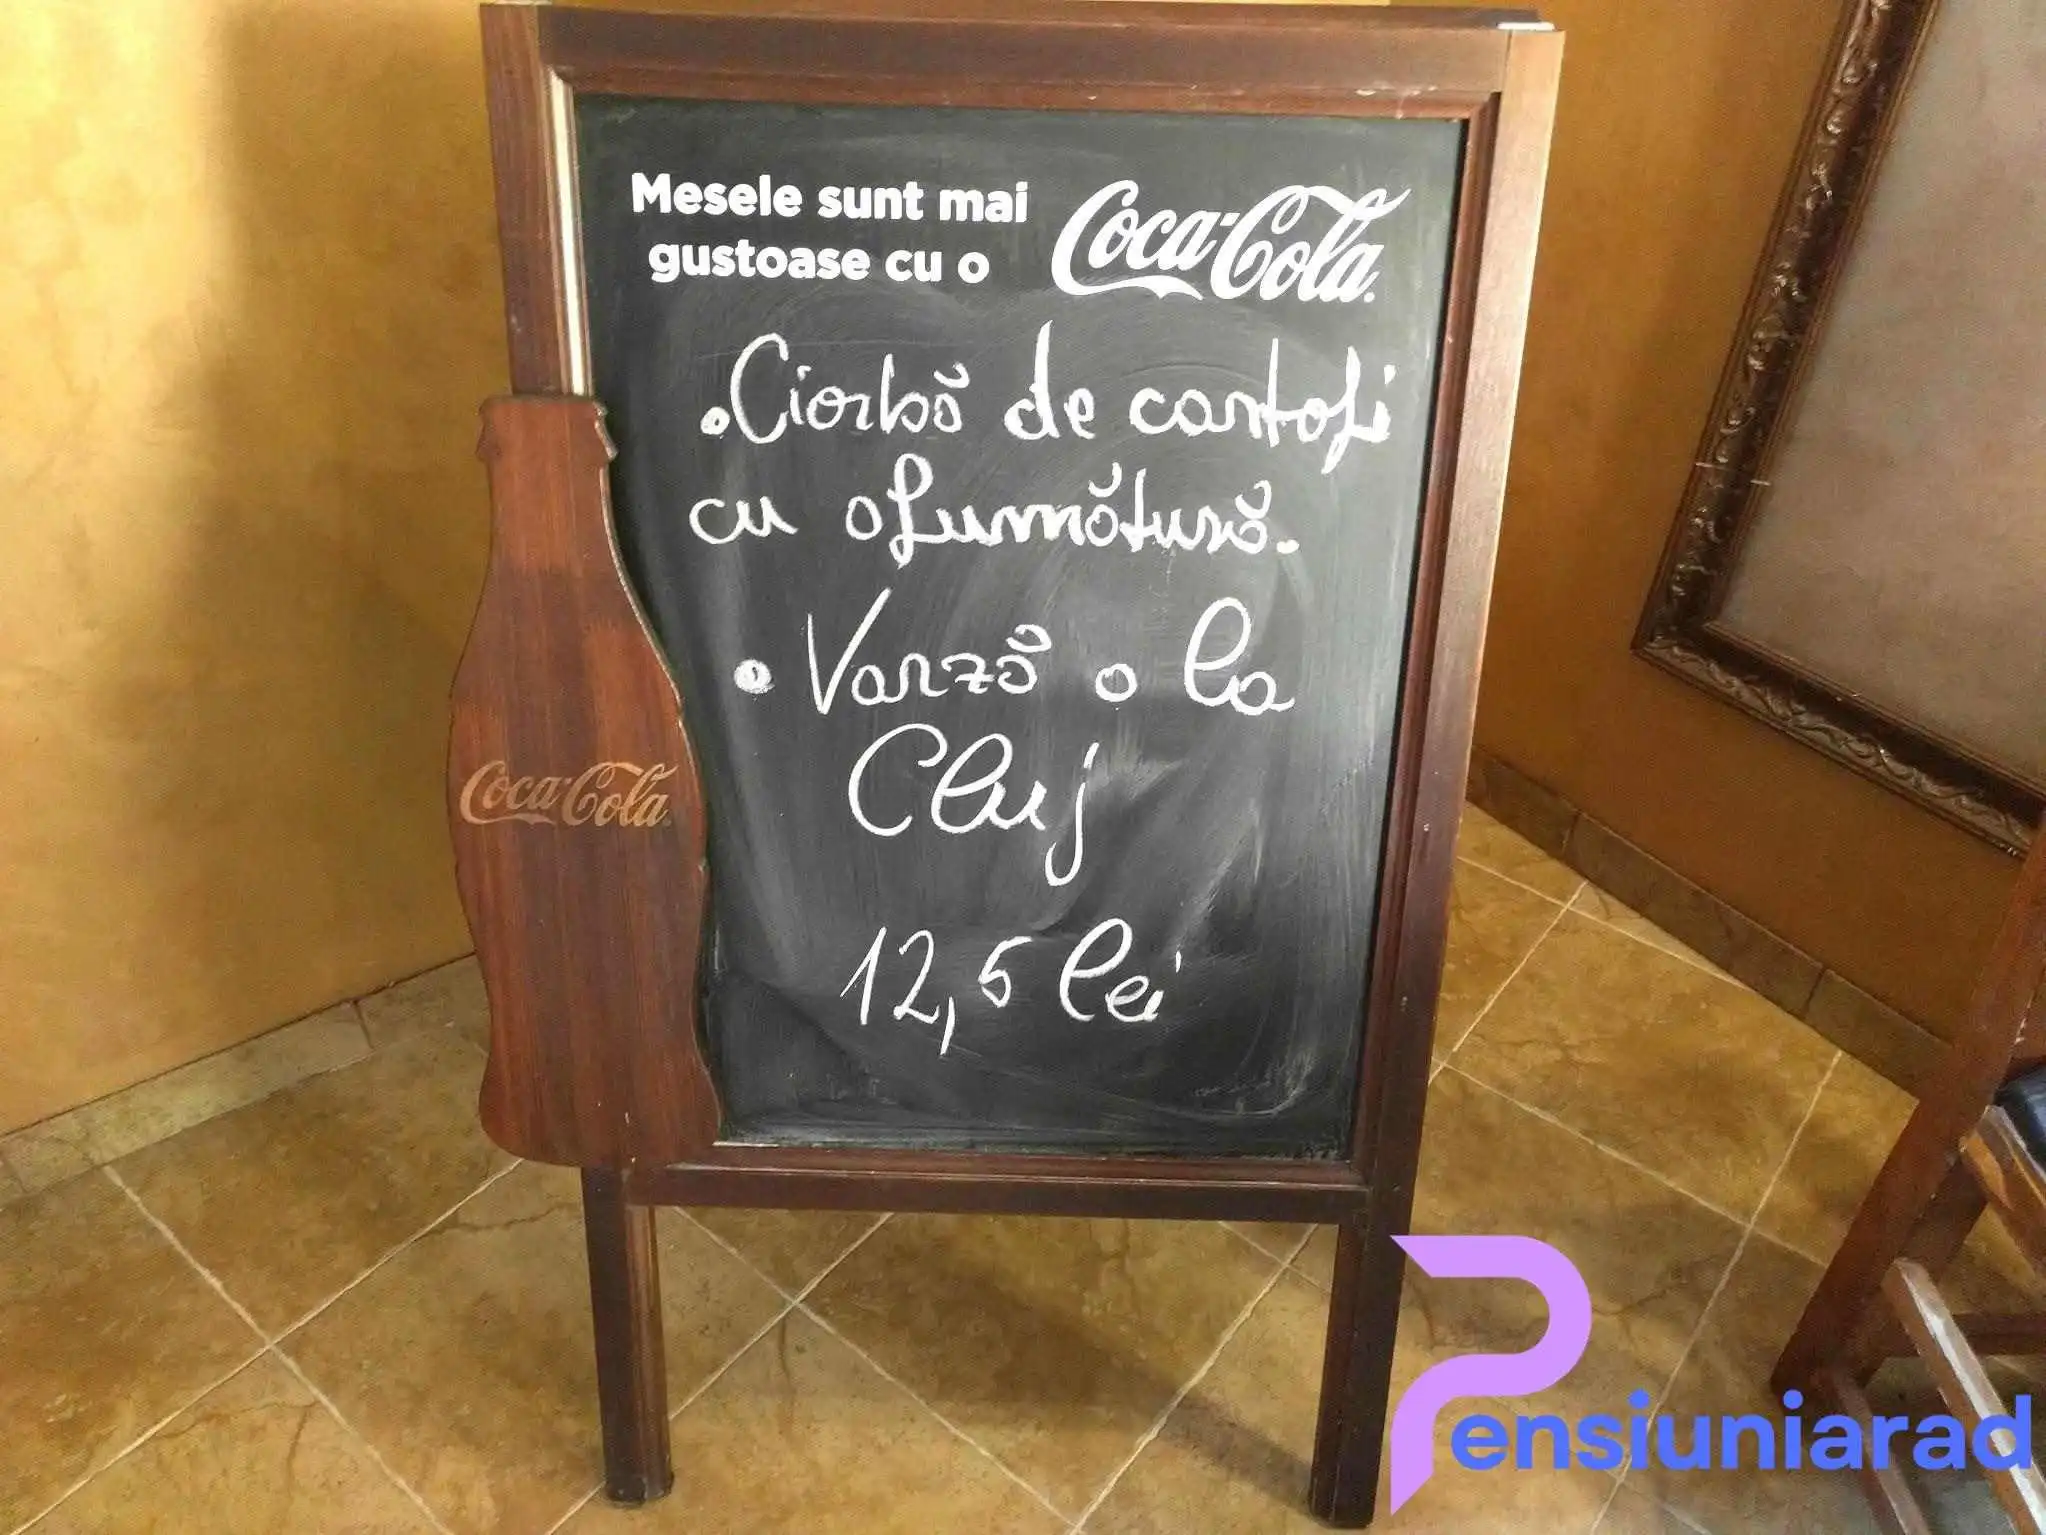 Mesele sunt mai
gustoase cu o
Coca-Cola
Ciorbă de cartofi
cu afumătură.
Varză a la
Cluj
12,5 lei
Coca-Cola
Pensiuniarad